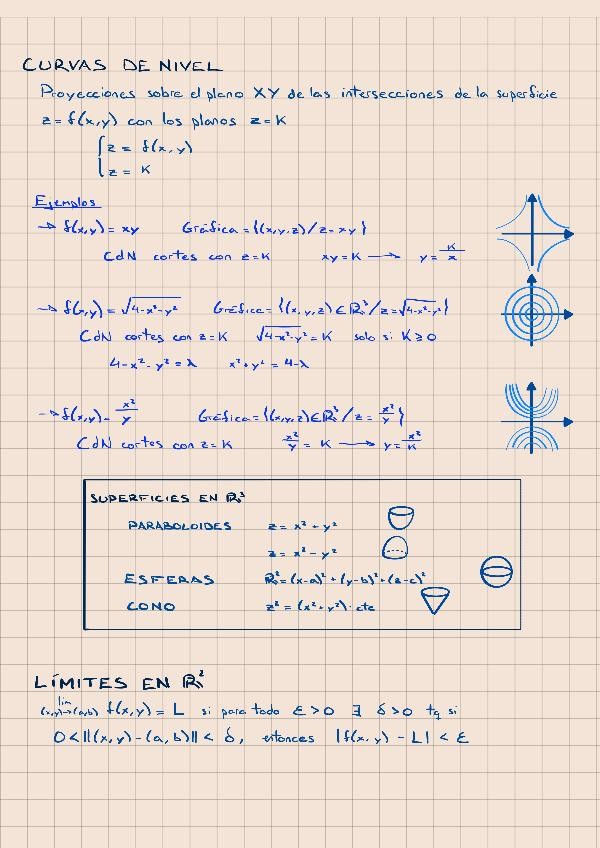 CURVAS DE NIVEL
Proyecciones sobre el plano XY de las intersecciones de la superficie
z = f(x,y) con los planos z = K
{ z = f(x,y)
{ z = K
Ejemplos
→ f(x,y) = xy Gráfica = {(x,y,z) / z = xy}
CdN cortes con z = K xy = K → y = K/x
→ f(x,y) = √(4-x²-y²) Gráfica = {(x,y,z) ∈ ℝ³ / z = √(4-x²-y²)}
CdN cortes con z = K √(4-x²-y²) = K solo si K ≥ 0
4-x²-y² = λ x²+y² = 4-λ
→ f(x,y) = x²/y Gráfica = {(x,y,z) ∈ ℝ³ / z = x²/y}
CdN cortes con z = K x²/y = K → y = x²/K
SUPERFICIES EN ℝ³
PARABOLOIDES z = x² + y²
z = x² - y²
ESFERAS R² = (x-a)² + (y-b)² + (z-c)²
CONO z² = (x²+y²) · cte
LÍMITES EN ℝ²
lim (x,y)→(a,b) f(x,y) = L si para todo ε > 0 ∃ δ > 0 tq si
0 < ||(x,y)-(a,b)|| < δ, entonces |f(x,y) - L| < ε